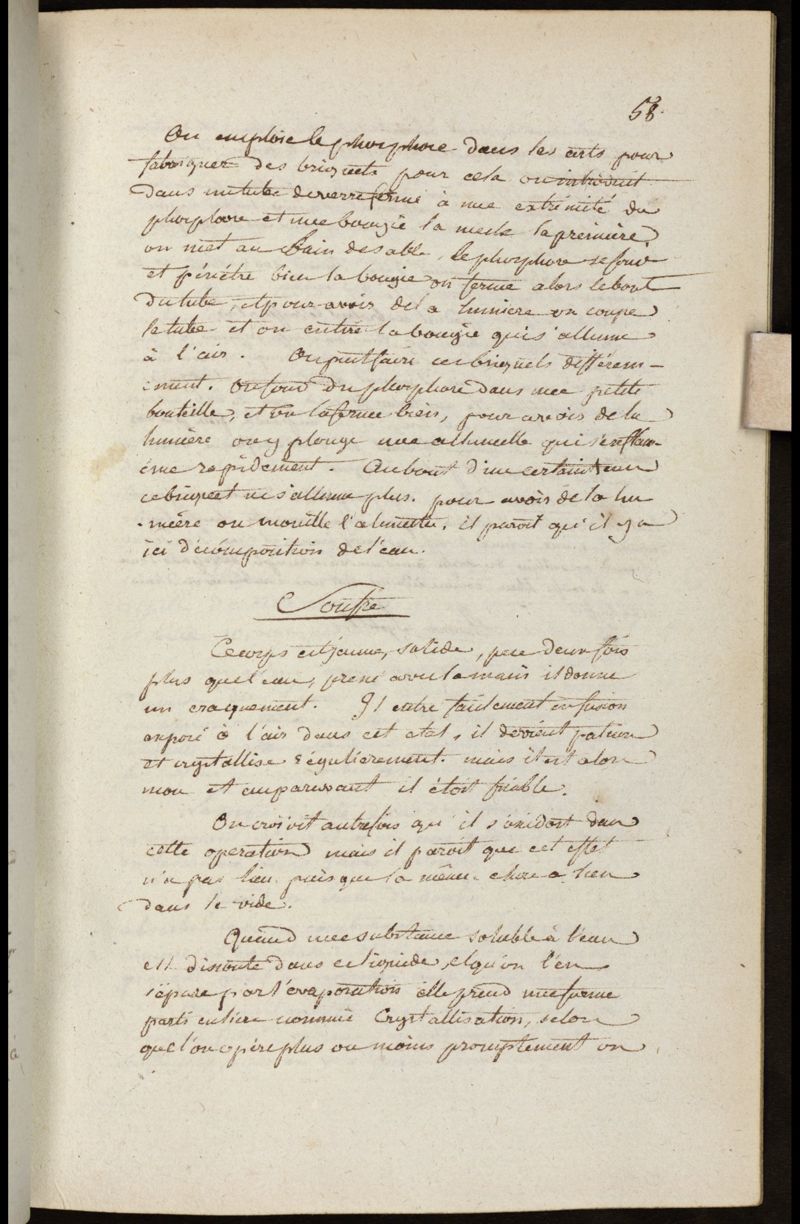 58.
On emploie le phosphore dans les arts pour
fabriquer des briquets pour cela on introduit
dans un tube de verre fermé à une extrémité du
phosphore et une bougie la meche la première
on met au Bain de sable, le phosphore se fond
et pénétre bien la bougie on ferme alors le bout
du tube, et pour avoir de la lumiere on coupe
le tube et on en tire la bougie qui s'allume
à l'air. On peut faire ces briquets différem-
ment. On fond du phosphore dans une petite
bouteille, et on la ferme bien, pour avoir de la
lumière on y plonge une allumette qui s'enflam-
me rapidement. Au bout d'un certain tem
ce briquet ne s'allume plus. pour avoir de la lu
-mière on mouille l'alumette, il paroit qu'il y a
ici décomposition de l'eau.
Soufre
Ce corps est jaune, solide, pese deux fois
plus que l'eau, pressé avec la main il donne
un craquement. Il entre facilement en fusion
exposé à l'air dans cet etat, il devient
et crystallise régulièrement. mais il est alors
mou et auparavant il étoit friable.
On croioit autrefois qu'il s'oxidoit dans
cette operation mais il paroit que cet effet
n'a pas lieu puisque la même chose a lieu
dans le vide.
Quand une substance soluble à l'eau
est dissoute dans ce liquide, et qu'on l'en
sépare par l'évaporation elle prend une forme
particuliere nommée Crystallisation, selon
que l'on opère plus ou moins promptement on